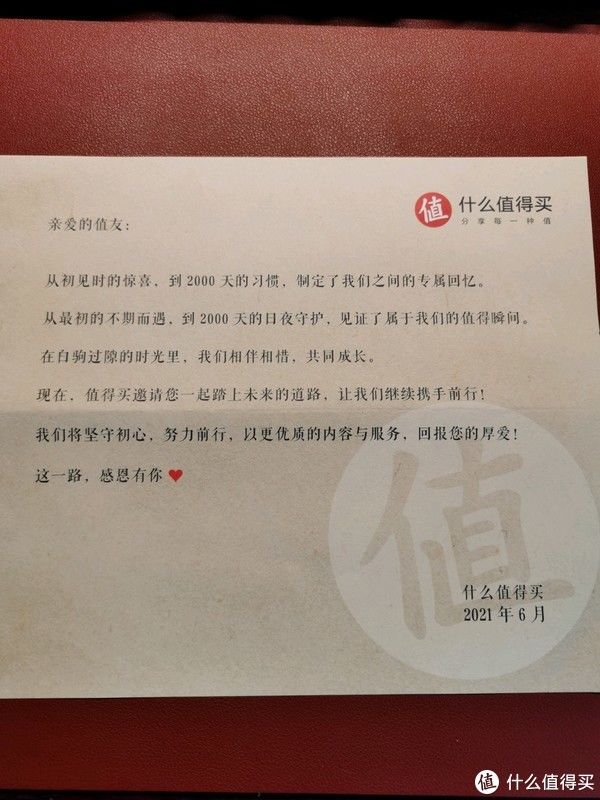 值 什么值得买
分享每一种值
亲爱的值友：
从初见时的惊喜，到 2000 天的习惯，制定了我们之间的专属回忆。
从最初的不期而遇，到 2000 天的日夜守护，见证了属于我们的值得瞬间。
在白驹过隙的时光里，我们相伴相惜，共同成长。
现在，值得买邀请您一起踏上未来的道路，让我们继续携手前行！
我们将坚守初心，努力前行，以更优质的内容与服务，回报您的厚爱！
这一路，感恩有你 ♥
值
什么值得买
2021 年 6 月
值 什么值得买